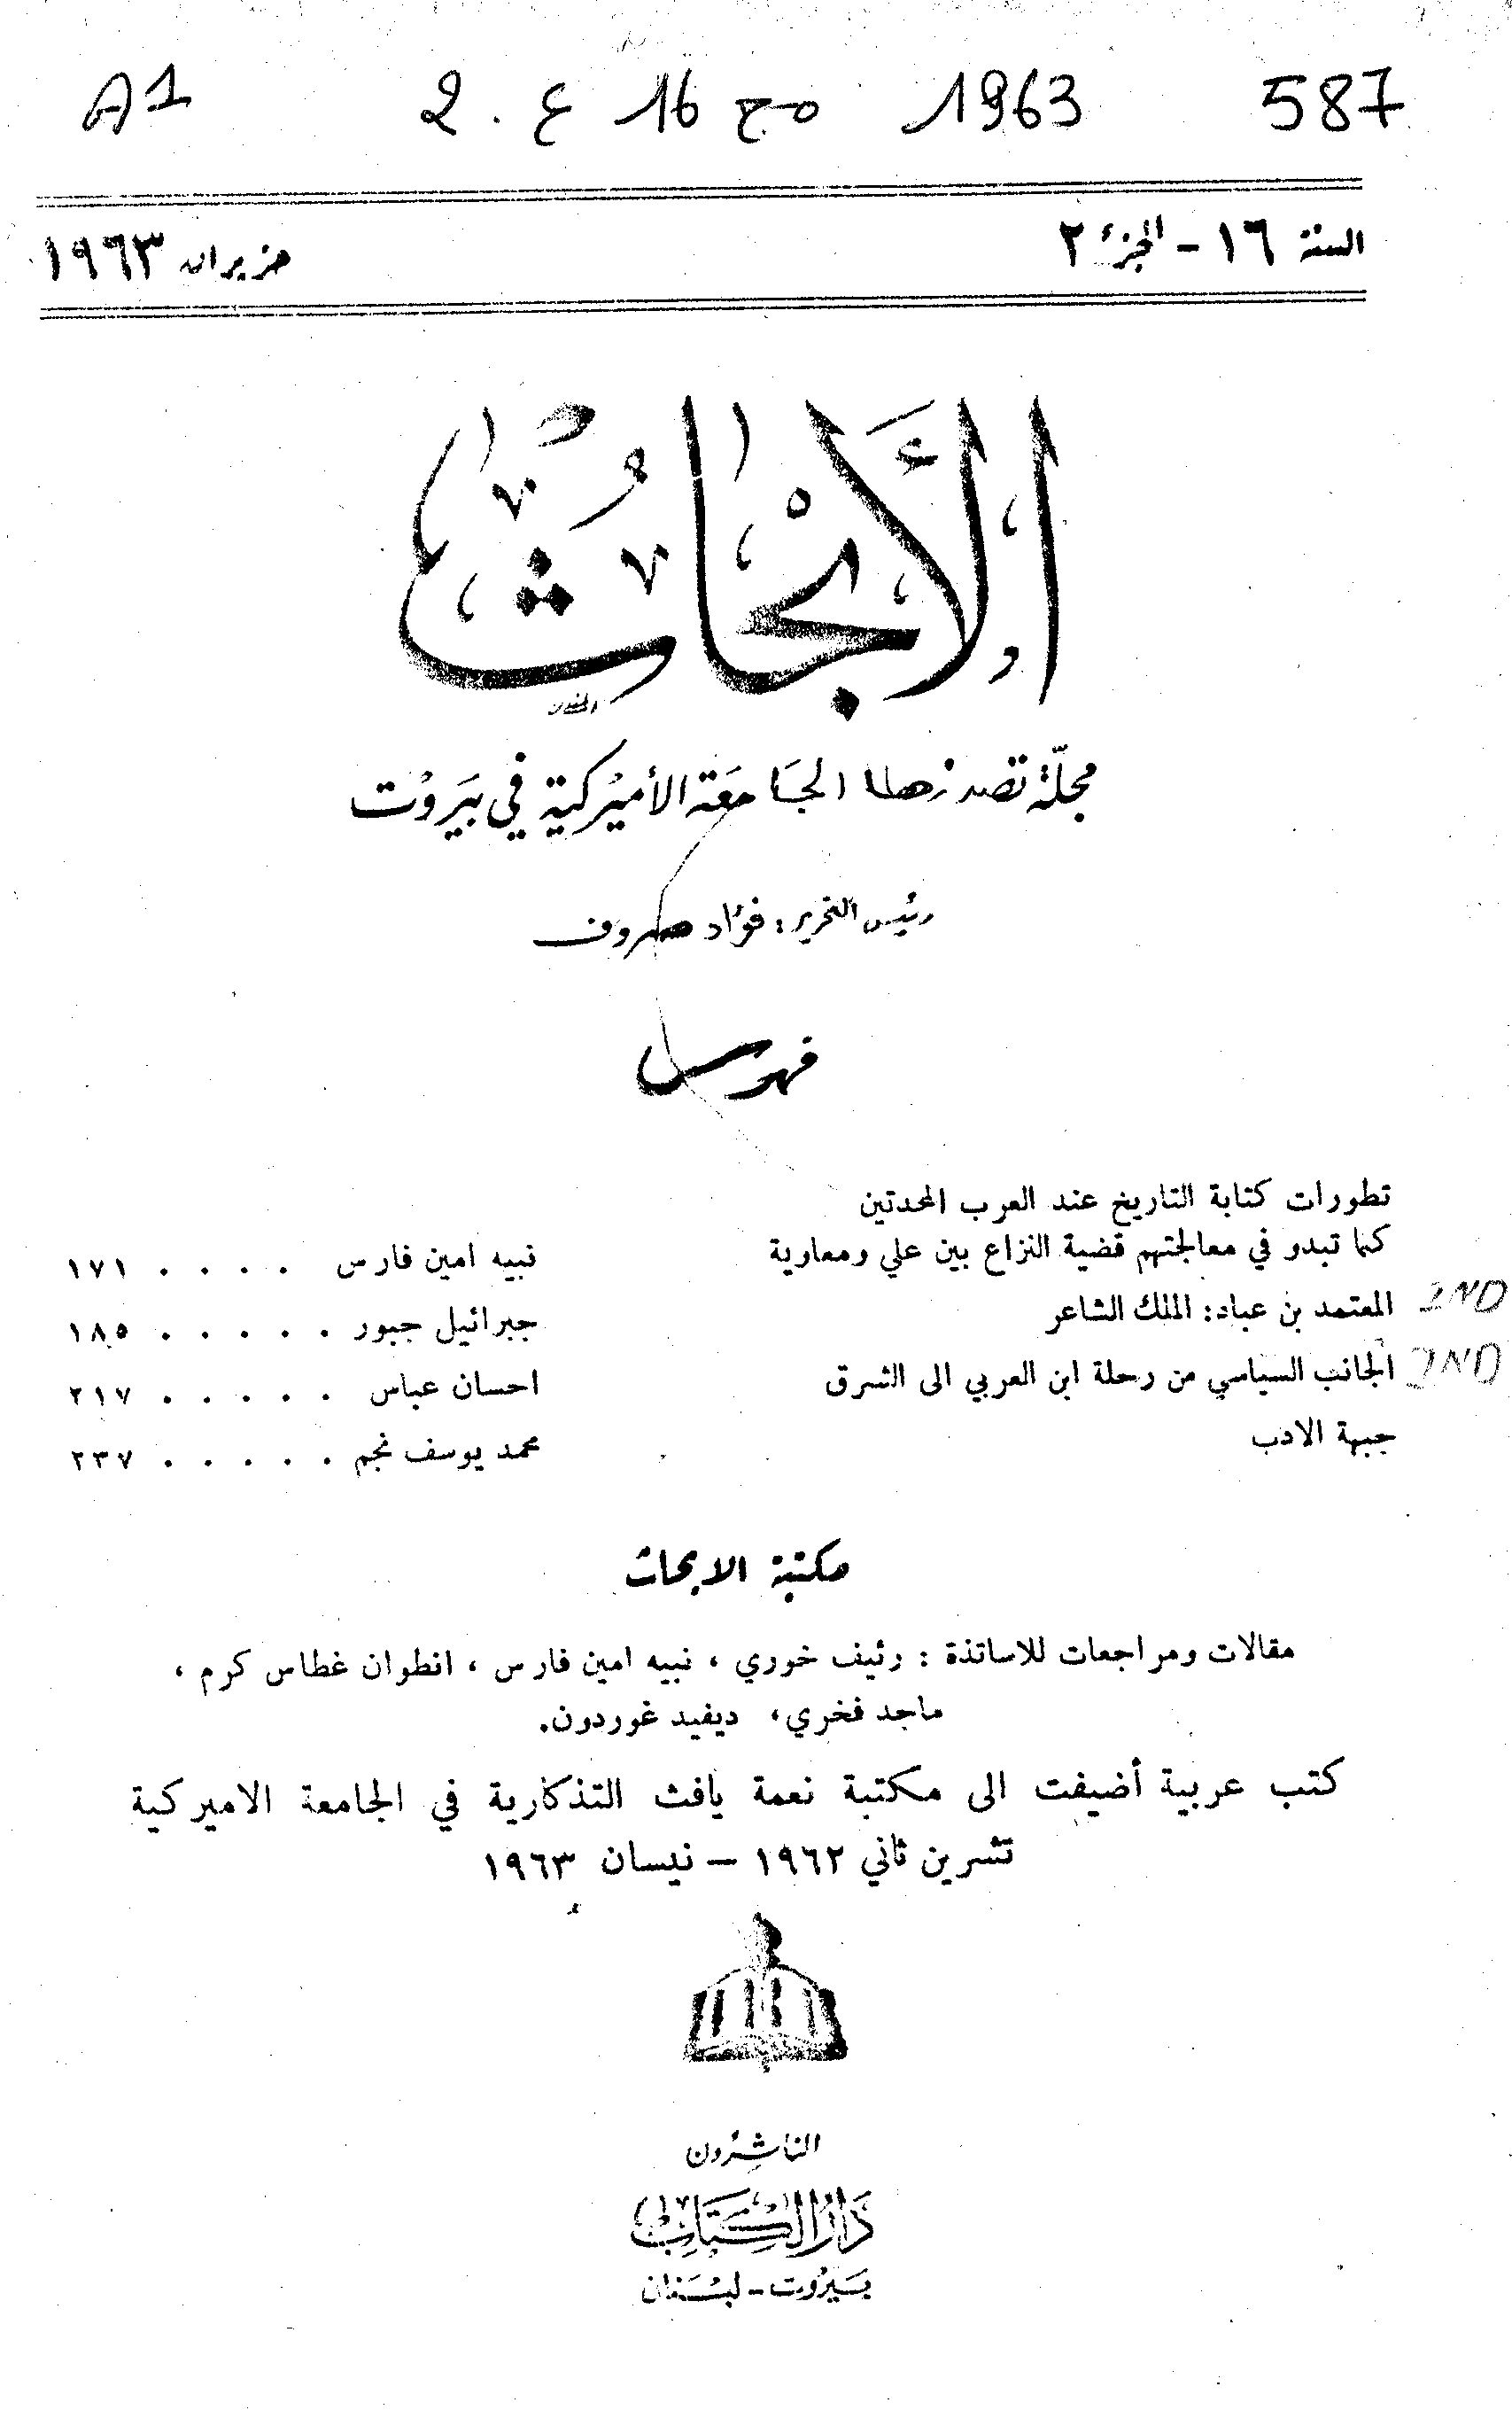 587 1963 مج 16 ع. 2 A1
السنة ١٦ - الجزء ٢ حزيران ١٩٦٣
الأَبْحَاثُ
مجلّة تصدرها الجَامعَة الأميْركية في بَيرُوْت
رئيس التحرير: فؤاد صروف
فهرس
تطورات كتابة التاريخ عند العرب المحدثين
كما تبدو في معالجتهم قضية النزاع بين علي ومعاوية نبيه امين فارس . . . . ١٧١
IND المعتمد بن عباد: الملك الشاعر جبرائيل جبور . . . . . ١٨٥
IND الجانب السياسي من رحلة ابن العربي الى الشرق احسان عباس . . . . . ٢١٧
جبهة الادب محمد يوسف نجم . . . . . ٢٣٧
مكتبة الابحاث
مقالات ومراجعات للاساتذة : رئيف خوري ، نبيه امين فارس ، انطوان غطاس كرم ،
ماجد فخري، ديفيد غوردون.
كتب عربية أضيفت الى مكتبة نعمة يافث التذكارية في الجامعة الاميركية
تشرين ثاني ١٩٦٢ – نيسان ١٩٦٣
الناشرون
دَارُ الكِتَاب
بَيرُوت - لبْنَان